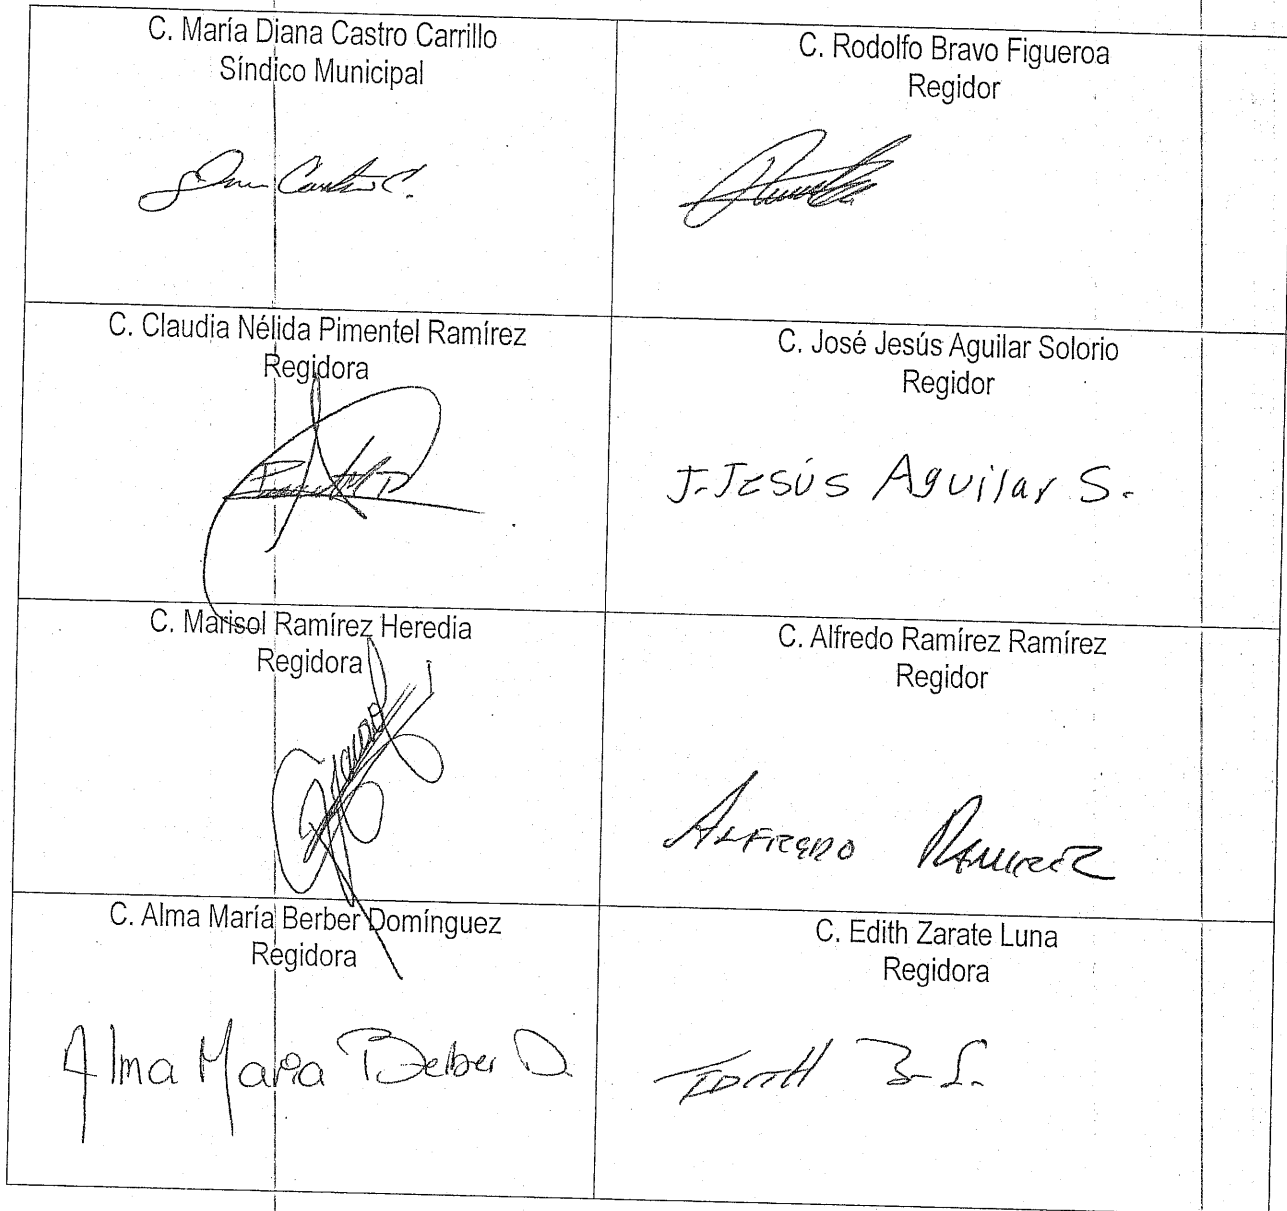 C. María Diana Castro Carrillo
Síndico Municipal
C. Rodolfo Bravo Figueroa
Regidor
C. Claudia Nélida Pimentel Ramírez
Regidora
C. José Jesús Aguilar Solorio
Regidor
J. JESÚS Aguilar S.
C. Marisol Ramírez Heredia
Regidora
C. Alfredo Ramírez Ramírez
Regidor
ALFREDO RAMIREZ
C. Alma María Berber Domínguez
Regidora
Alma Maria Berber D.
C. Edith Zarate Luna
Regidora
EDITH Z L.